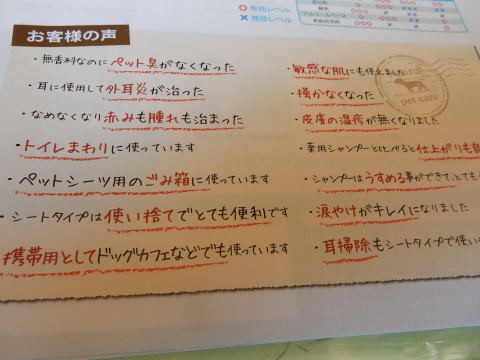 有効レベル
無効レベル
お客様の声
・無香料なのにペット臭がなくなった
・耳に使用して外耳炎が治った
・なめなくなり赤みも腫れも治まった
・トイレまわりに使っています
・ペットシーツ用のごみ箱に使っています
・シートタイプは使い捨てでとても便利です
携帯用としてドッグカフェなどでも使っています
・敏感な肌にも使えました
・痒がなくなった
・皮膚の湿疹が無くなりました
・薬用シャンプーと比べると仕上がりも
・シャンプーはうすめる事ができて、とても
・涙やけがキレイになりました
・耳掃除もシートタイプで使い
pet care